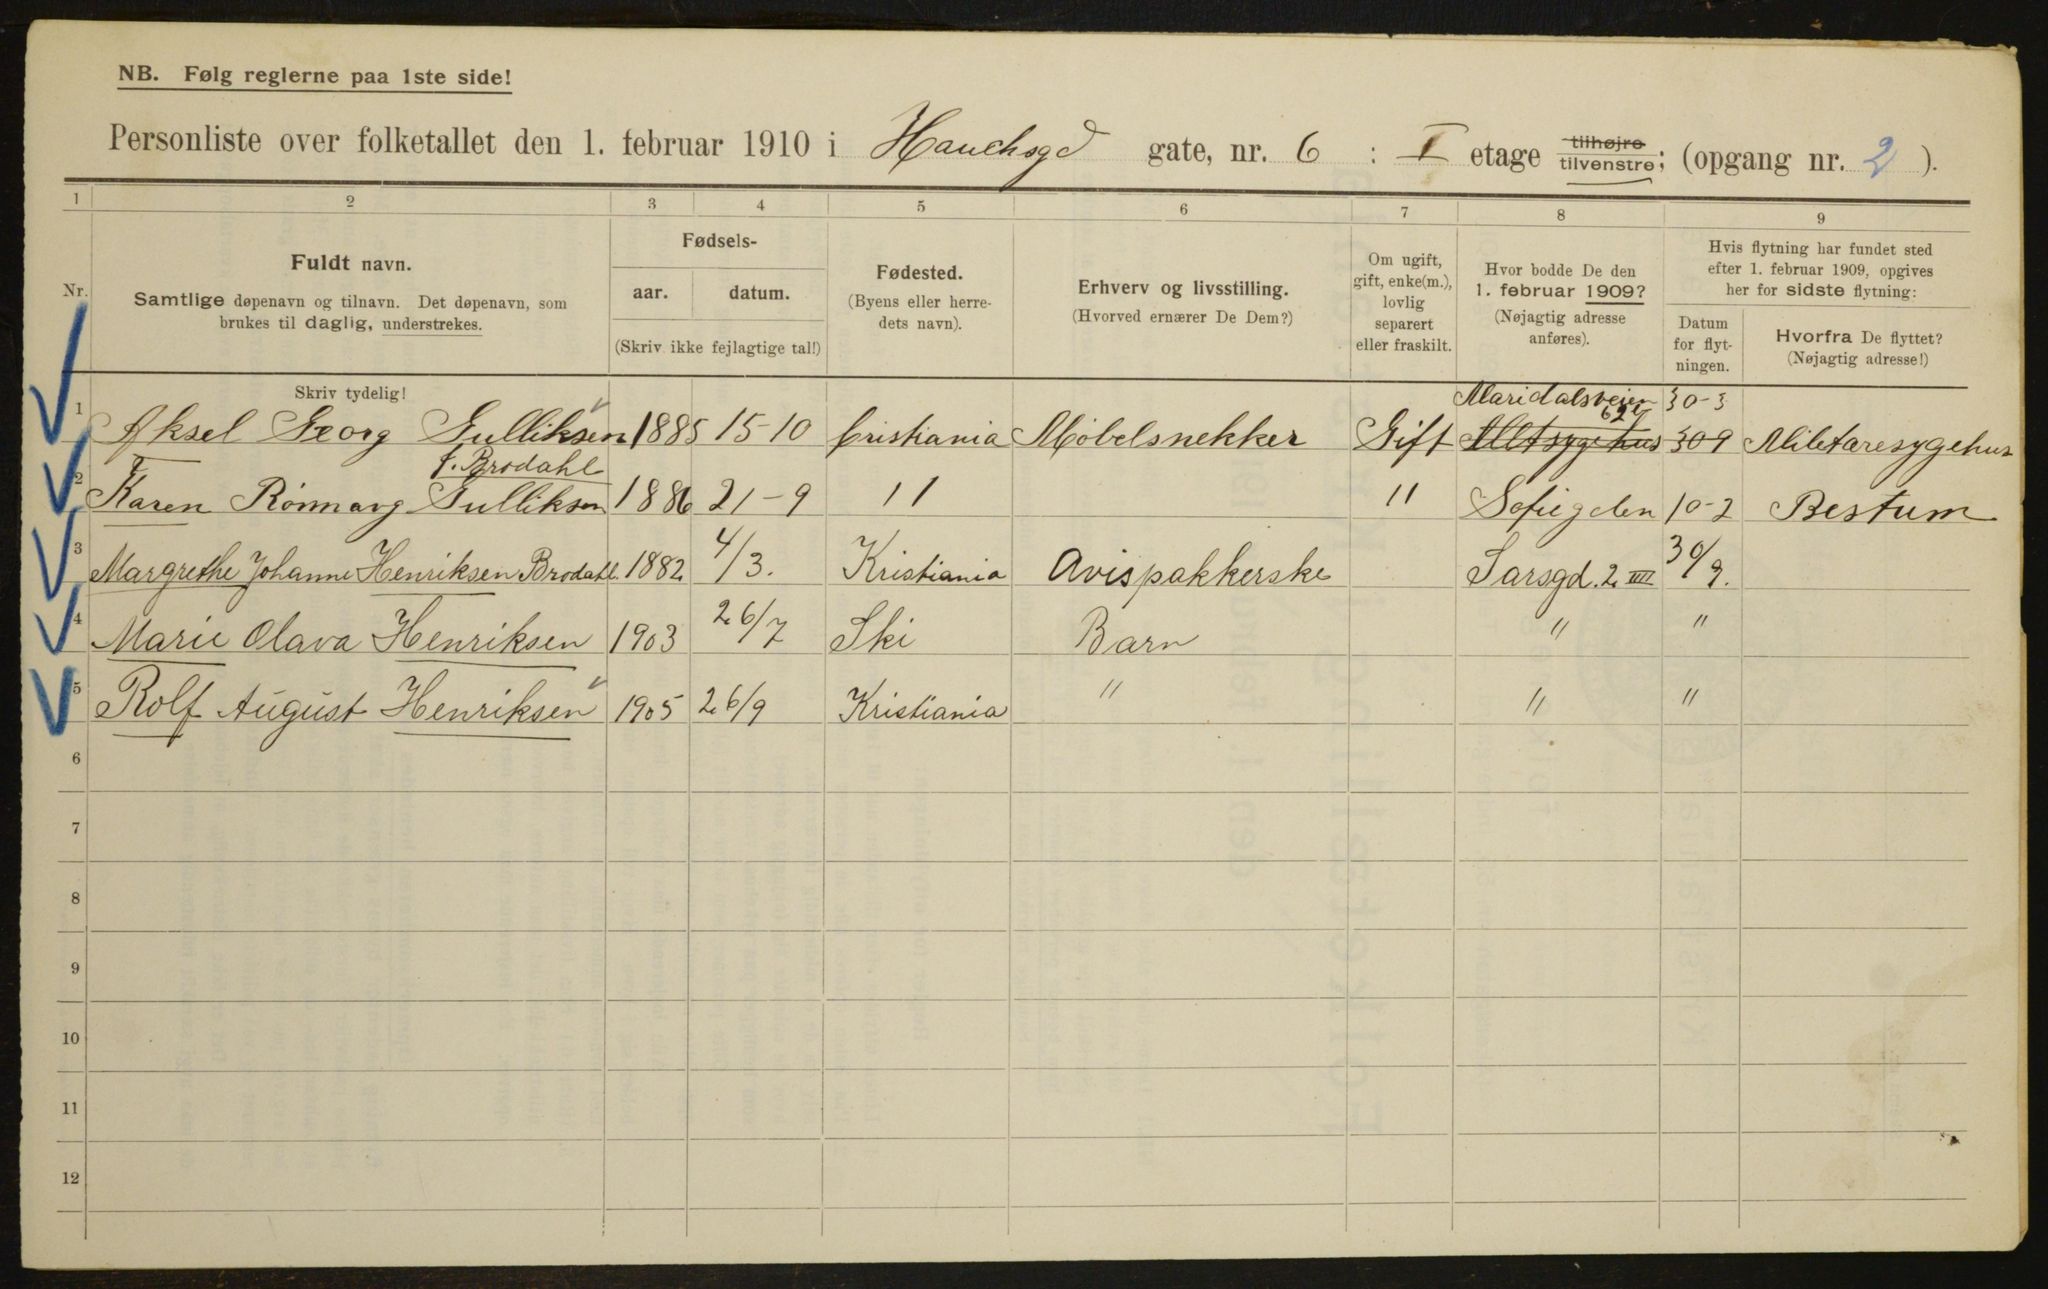 NB. Følg reglerne paa 1ste side!
Personliste over folketallet den 1. februar 1910 i Hauchsgd gate, nr. 6 : I etage tilhøjre tilvenstre; (opgang nr. 2 ).
1 2 3 4 5 6 7 8 9
Nr.
Fuldt navn.
Samtlige døpenavn og tilnavn. Det døpenavn, som
brukes til daglig, understrekes.
Skriv tydelig!
Fødsels-
aar. datum.
(Skriv ikke fejlagtige tal!)
Fødested.
(Byens eller herre-
dets navn).
Erhverv og livsstilling.
(Hvorved ernærer De Dem?)
Om ugift,
gift, enke(m.),
lovlig
separert
eller fraskilt.
Hvor bodde De den
1. februar 1909?
(Nøjagtig adresse
anføres).
Hvis flytning har fundet sted
efter 1. februar 1909, opgives
her for sidste flytning:
Datum
for flyt-
ningen.
Hvorfra De flyttet?
(Nøjagtig adresse!)
Maridalsveien 30-3
1 Aksel Georg Gulliksen 1885 15-10 Cristiania Møbelsnekker Gift 309 Militæresygehus
f. Brodahl
2 Karen Rönnaug Gulliksen 1886 21-9 11 11 Sofiegden 10-2 Bestum
3 Margrethe Johanne Henriksen Brodahl. 1882 4/3. Kristiania Avispakkerske Sarsgd. 2 IIII 30/9.
4 Marie Olava Henriksen 1903 26/7 Ski Barn " "
5 Rolf August Henriksen 1905 26/9 Kristiania " " "
6
7
8
9
10
11
12